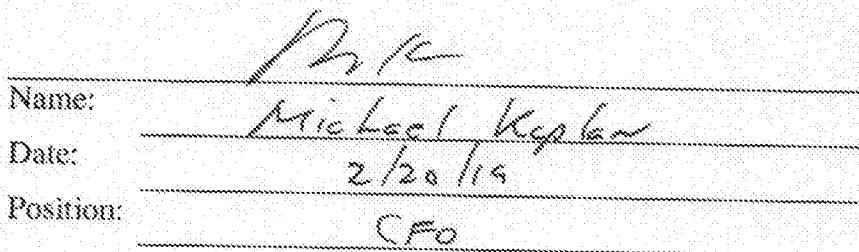 Name: Michael Kaplan
Date: 2/20/19
Position: CFO